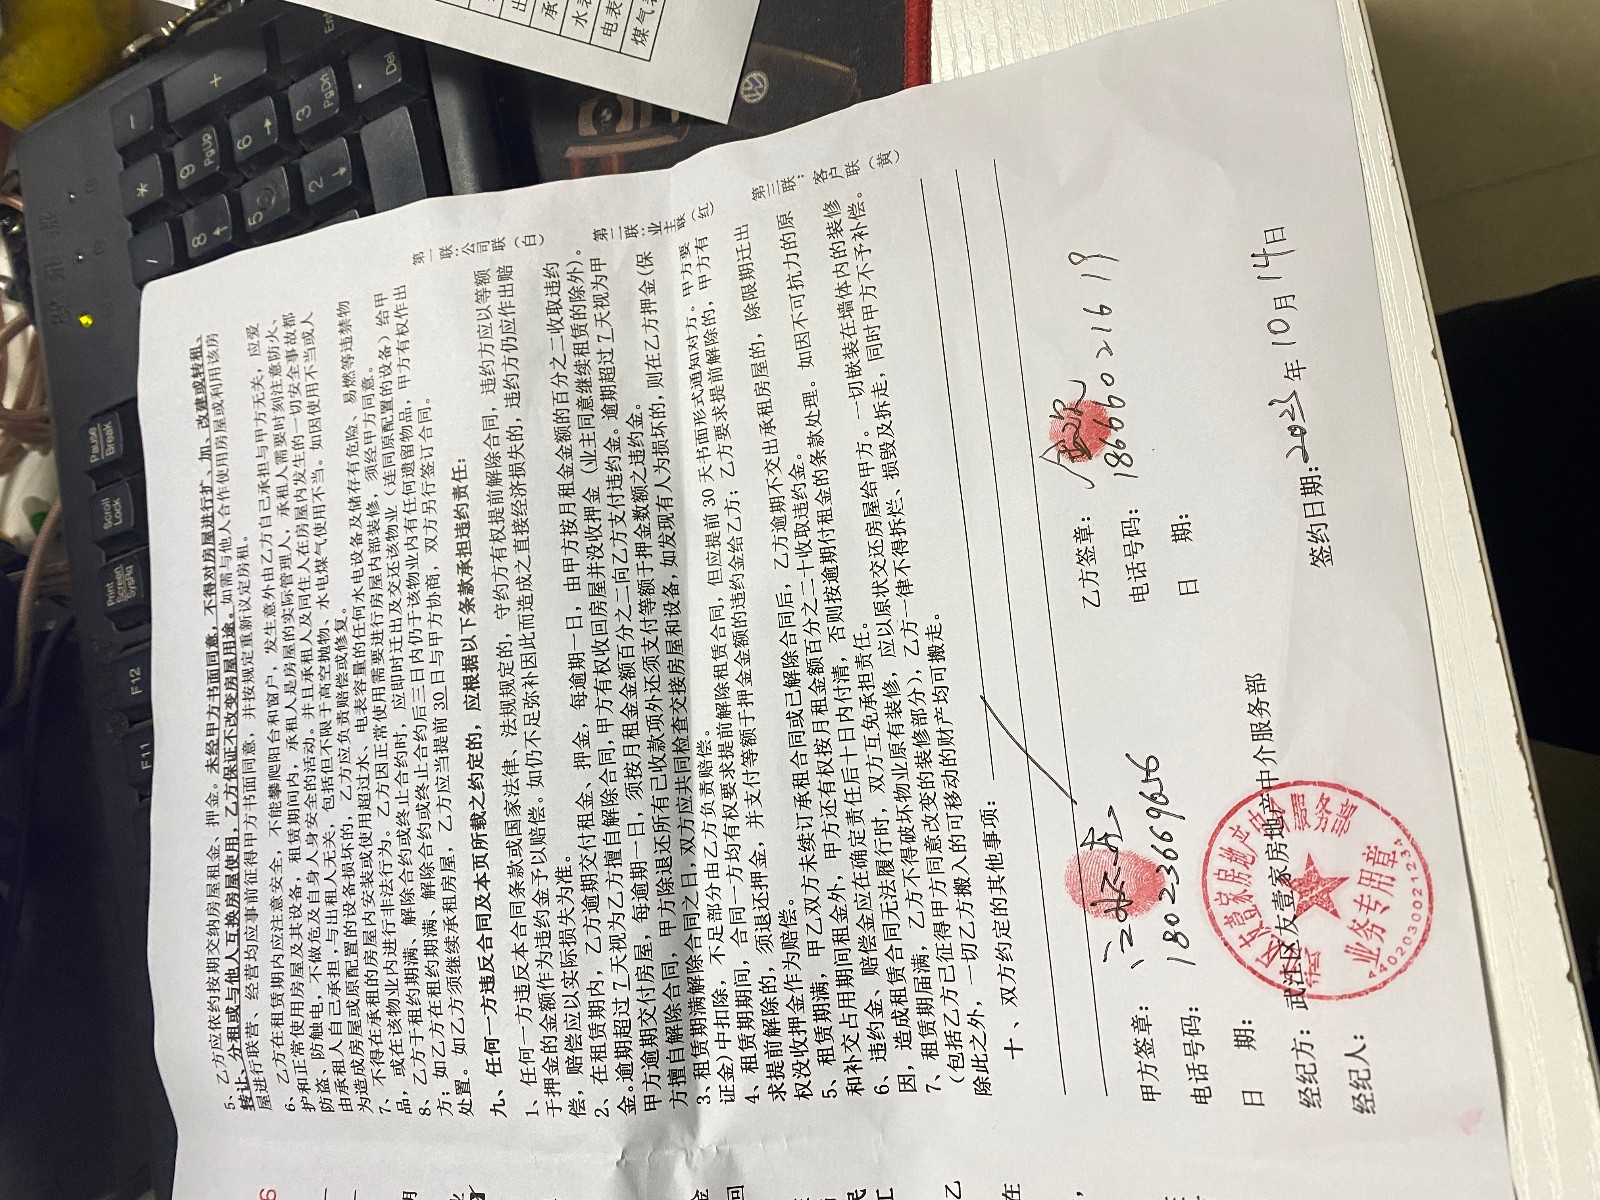 5、乙方应依约按期交纳房屋租金、押金。未经甲方书面同意，不得对房屋进行扩、加、改建或转租、
转让、分租或与他人互换房屋使用，乙方保证不改变房屋用途。如需与他人合作使用房屋或利用该房
屋进行联营、经营均应事前征得甲方书面同意，并按规定重新议定房租。
6、乙方在租赁期内应注意安全，不能攀爬阳台和窗户，发生意外由乙方自己承担与甲方无关，应爱
护和正常使用房屋及其设备，租赁期间内，承租人是房屋的实际管理人，承租人需要时刻注意防火、
防盗、防触电，不做危及自身人身安全的活动。并且承租人及同住人在房屋内发生的一切安全事故都
由承租人自己承担，与出租人无关，包括但不限于高空抛物、水电煤气使用不当。如因使用不当或人
为造成房屋或原配置的设备损坏的，乙方应负责赔偿或修复。
7、不得在承租的房屋内安装或使用超过水、电表容量的任何水电设备及储存有危险、易燃等违禁物
品，或在该物业内进行非法行为。乙方因正常使用需要进行房屋内部装修，须经甲方同意。
8、乙方于租约期满、解除合约或终止合约时，应即时迁出及交还该物业（连同原配置的设备）给甲
方；如乙方在租约期满、解除合约或终止合约后三日内仍于该物业内有任何遗留物品，甲方有权作出
处置。如乙方须继续承租房屋，乙方应当提前 30 日与甲方协商，双方另行签订合同。
九、任何一方违反合同及本页所载之约定的，应根据以下条款承担违约责任：
1、任何一方违反本合同条款或国家法律、法规规定的，守约方有权提前解除合同，违约方应以等额
于押金的金额作为违约金予以赔偿。如仍不足弥补因此而造成之直接经济损失的，违约方仍应作出赔
偿，赔偿应以实际损失为准。
2、在租赁期内，乙方逾期交付租金、押金，每逾期一日，由甲方按月租金金额的百分之二收取违约
金。逾期超过 7 天视为乙方擅自解除合同，甲方有权收回房屋并没收押金（业主同意继续租赁的除外）。
甲方逾期交付房屋，每逾期一日，须按月租金金额百分之二向乙方支付违约金。逾期超过 7 天视为甲
方擅自解除合同，甲方除退还所有已收款项外还须支付等额于押金数额之违约金。
3、租赁期满解除合同之日，双方应共同检查交接房屋和设备，如发现有人为损坏的，则在乙方押金（保
证金）中扣除，不足部分由乙方负责赔偿。
4、租赁期期间，合同一方均有权要求提前解除租赁合同，但应提前 30 天书面形式通知对方。甲方要
求提前解除的，须退还押金，并支付等额于押金金额的违约金给乙方；乙方要求提前解除的，甲方有
权没收押金作为赔偿。
5、租赁期满，甲乙双方未续订承租合同或已解除合同后，乙方逾期不交出承租房屋的，除限期迁出
和补交占用期间租金外，甲方还有权按月租金额百分之二十收取违约金。
6、违约金、赔偿金应在确定责任后十日内付清，否则按逾期付租金的条款处理。如因不可抗力的原
因，造成租赁合同无法履行时，双方互免承担责任。
7、租赁期届满，乙方不得破坏物业原有装修，应以原状交还房屋给甲方。一切嵌装在墙体内的装修
（包括乙方已征得甲方同意改变的装修部分），乙方一律不得拆烂、损毁及拆走，同时甲方不予补偿。
除此之外，一切乙方搬入的可移动的财产均可搬走。
十、双方约定的其他事项：
第一联：公司联（白）
第二联：业主联（红）
第三联：客户联（黄）
甲方签章：
乙方签章：
电话号码：18023669656
电话号码：18666021619
日 期：
日 期：
经纪方：武江区友壹家房地产中介服务部
经纪人：
签约日期：2025年10月14日
武江区友壹家房地产中介服务部
业务专用章
4402030021234
Pause
Break
Scroll
Lock
Print
Screen
SysRq
F12
F11
/
*
-
8
9
PgUp
+
5
6
2
3
PgDn
.
Del
水表
电表
煤气表